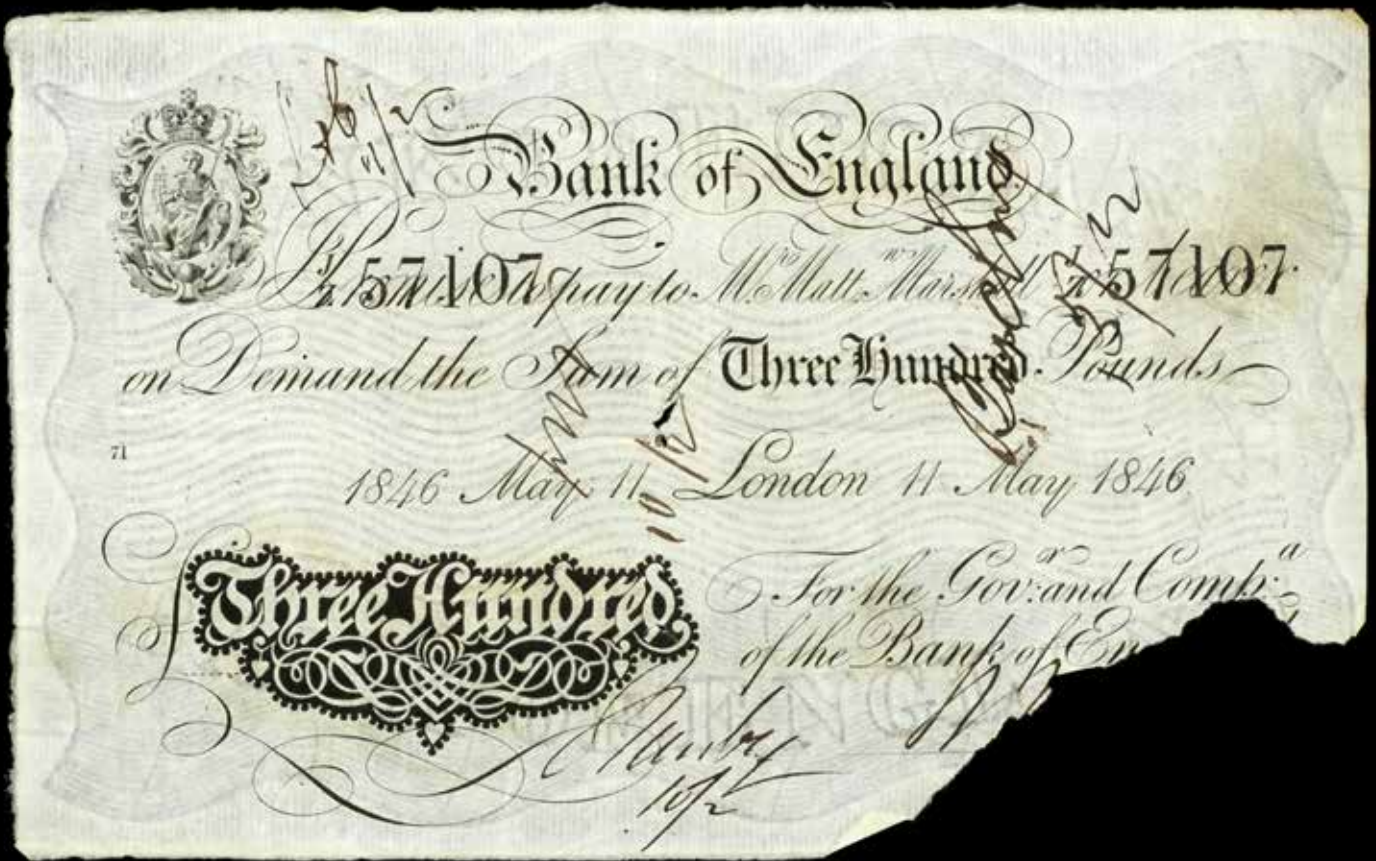 Bank of England
№ 57107 I Promise to pay to Mr. Matt.w Marshall or bearer № 57107
on Demand the Sum of Three Hundred Pounds
71
1846 May 11 London 11 May 1846
Three Hundred
For the Gov.r and Comp.a
of the Bank of En
ENG
10/2
10/2